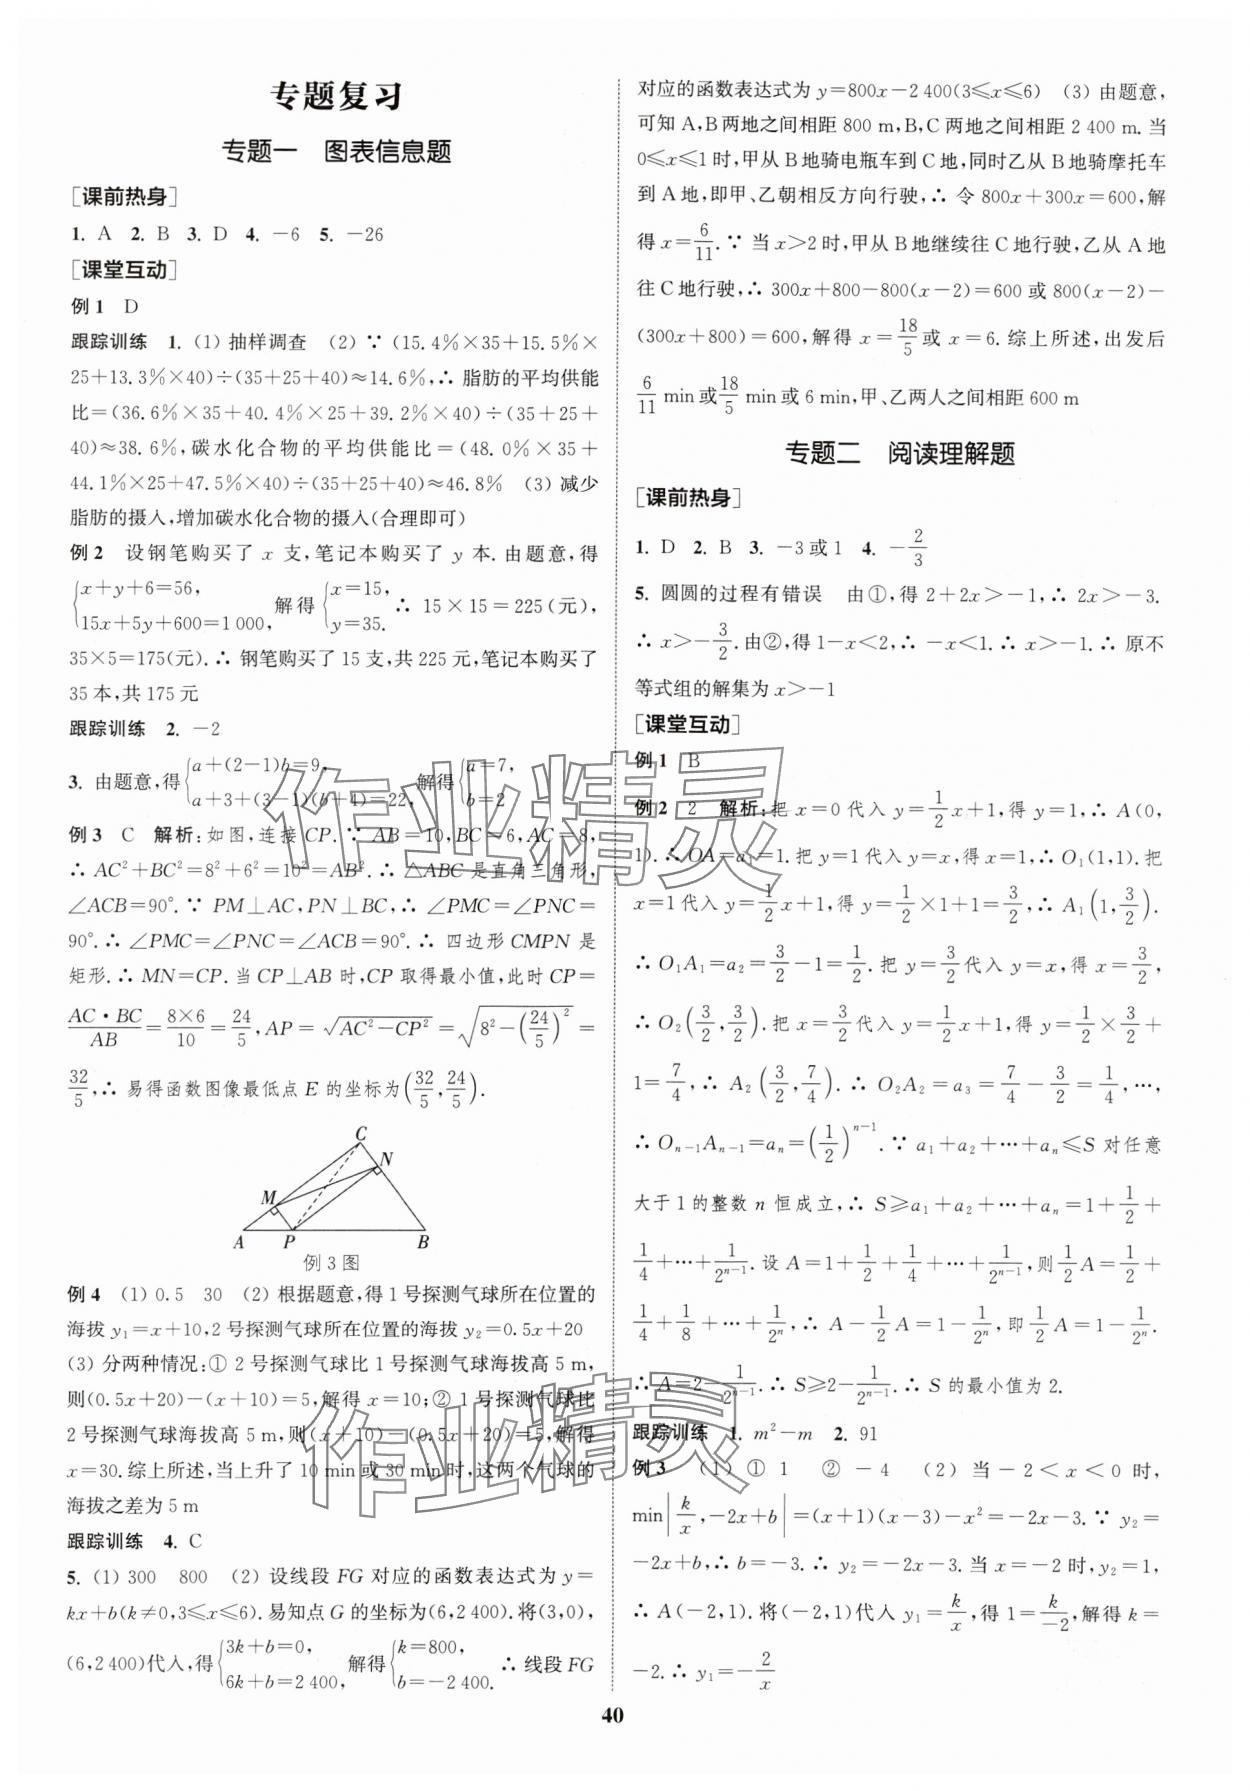 专题复习
专题一 图表信息题
[课前热身]
1. A 2. B 3. D 4. -6 5. -26
[课堂互动]
例1 D
跟踪训练 1. (1) 抽样调查 (2) ∵ (15.4%×35+15.5%×
25+13.3%×40)÷(35+25+40)≈14.6%,∴ 脂肪的平均供能
比=(36.6%×35+40.4%×25+39.2%×40)÷(35+25+
40)≈38.6%,碳水化合物的平均供能比=(48.0%×35+
44.1%×25+47.5%×40)÷(35+25+40)≈46.8% (3) 减少
脂肪的摄入,增加碳水化合物的摄入(合理即可)
例2 设钢笔购买了 x 支,笔记本购买了 y 本. 由题意,得
{x+y+6=56, 15x+5y+600=1 000, 解得 {x=15, y=35. ∴ 15×15=225(元),
35×5=175(元). ∴ 钢笔购买了 15 支,共 225 元,笔记本购买了
35 本,共 175 元
跟踪训练 2. -2
3. 由题意,得 {a+(2-1)b=9, a+3+(3-1)(b+4)=22, 解得 {a=7, b=2
例3 C 解析:如图,连接 CP. ∵ AB=10,BC=6,AC=8,
∴ AC²+BC²=8²+6²=10²=AB². ∴ △ABC 是直角三角形,
∠ACB=90°. ∵ PM⊥AC,PN⊥BC,∴ ∠PMC=∠PNC=
90°. ∴ ∠PMC=∠PNC=∠ACB=90°. ∴ 四边形 CMPN 是
矩形. ∴ MN=CP. 当 CP⊥AB 时,CP 取得最小值,此时 CP=
AC·BC/AB=8×6/10=24/5,AP=√(AC²-CP²)=√(8²-(24/5)²)=
32/5,∴ 易得函数图像最低点 E 的坐标为(32/5,24/5).
C
N
M
A P B
例3图
例4 (1) 0.5 30 (2) 根据题意,得 1 号探测气球所在位置的
海拔 y₁=x+10,2 号探测气球所在位置的海拔 y₂=0.5x+20
(3) 分两种情况:① 2 号探测气球比 1 号探测气球海拔高 5 m,
则(0.5x+20)-(x+10)=5,解得 x=10;② 1 号探测气球比
2 号探测气球海拔高 5 m,则(x+10)-(0.5x+20)=5,解得
x=30. 综上所述,当上升了 10 min 或 30 min 时,这两个气球的
海拔之差为 5 m
跟踪训练 4. C
5. (1) 300 800 (2) 设线段 FG 对应的函数表达式为 y=
kx+b(k≠0,3≤x≤6). 易知点 G 的坐标为(6,2 400). 将(3,0),
(6,2 400)代入,得 {3k+b=0, 6k+b=2 400, 解得 {k=800, b=-2 400. ∴ 线段 FG
对应的函数表达式为 y=800x-2 400(3≤x≤6) (3) 由题意,
可知 A,B 两地之间相距 800 m,B,C 两地之间相距 2 400 m. 当
0≤x≤1 时,甲从 B 地骑电瓶车到 C 地,同时乙从 B 地骑摩托车
到 A 地,即甲、乙朝相反方向行驶,∴ 令 800x+300x=600,解
得 x=6/11. ∵ 当 x>2 时,甲从 B 地继续往 C 地行驶,乙从 A 地
往 C 地行驶,∴ 300x+800-800(x-2)=600 或 800(x-2)-
(300x+800)=600,解得 x=18/5 或 x=6. 综上所述,出发后
6/11 min 或 18/5 min 或 6 min,甲、乙两人之间相距 600 m
专题二 阅读理解题
[课前热身]
1. D 2. B 3. -3 或 1 4. -2/3
5. 圆圆的过程有错误 由①,得 2+2x>-1,∴ 2x>-3.
∴ x>-3/2. 由②,得 1-x<2,∴ -x<1. ∴ x>-1. ∴ 原不
等式组的解集为 x>-1
[课堂互动]
例1 B
例2 2 解析:把 x=0 代入 y=1/2x+1,得 y=1,∴ A(0,
1). ∴ OA=a₁=1. 把 y=1 代入 y=x,得 x=1,∴ O₁(1,1). 把
x=1 代入 y=1/2x+1,得 y=1/2×1+1=3/2,∴ A₁(1,3/2).
∴ O₁A₁=a₂=3/2-1=1/2. 把 y=3/2 代入 y=x,得 x=3/2,
∴ O₂(3/2,3/2). 把 x=3/2 代入 y=1/2x+1,得 y=1/2×3/2+
1=7/4,∴ A₂(3/2,7/4). ∴ O₂A₂=a₃=7/4-3/2=1/4,…,
∴ Oₙ₋₁Aₙ₋₁=aₙ=(1/2)ⁿ⁻¹. ∵ a₁+a₂+…+aₙ≤S 对任意
大于 1 的整数 n 恒成立,∴ S≥a₁+a₂+…+aₙ=1+1/2+
1/4+…+1/2ⁿ⁻¹. 设 A=1+1/2+1/4+…+1/2ⁿ⁻¹,则 1/2A=1/2+
1/4+1/8+…+1/2ⁿ,∴ A-1/2A=1-1/2ⁿ,即 1/2A=1-1/2ⁿ.
∴ A=2-1/2ⁿ⁻¹. ∴ S≥2-1/2ⁿ⁻¹. ∴ S 的最小值为 2.
跟踪训练 1. m²-m 2. 91
例3 (1) ① 1 ② -4 (2) 当 -2<x<0 时,
min|k/x,-2x+b|=(x+1)(x-3)-x²=-2x-3. ∵ y₂=
-2x+b,∴ b=-3. ∴ y₂=-2x-3. 当 x=-2 时,y₂=1,
∴ A(-2,1). 将(-2,1)代入 y₁=k/x,得 1=k/-2,解得 k=
-2. ∴ y₁=-2/x
40
作业精灵
作业精灵